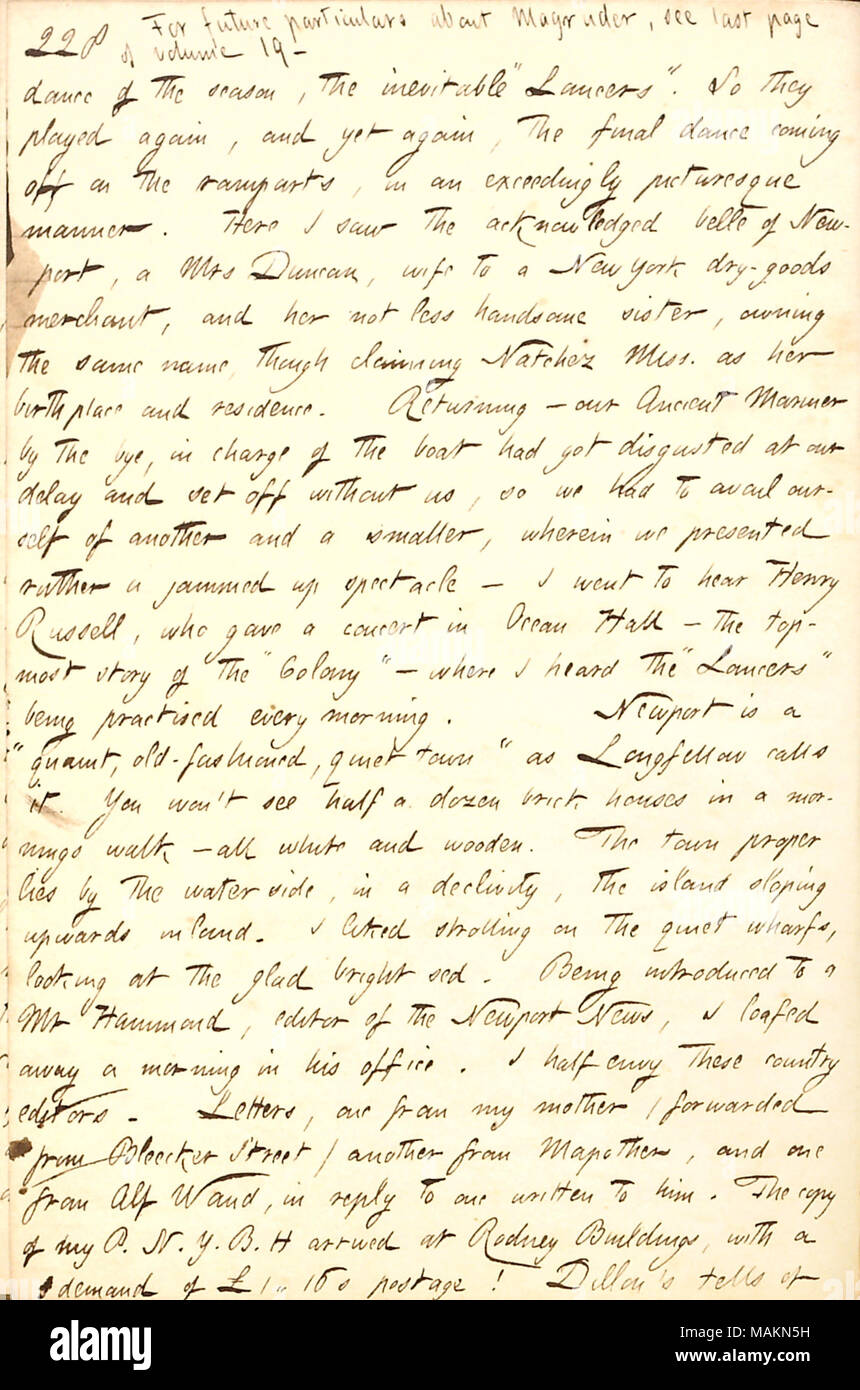 228 For future particulars about Magruder, see last page
of volume 19 —
dance of the season, the inevitable "Lancers". So they
played again, and yet again, the final dance coming
off on the ramparts, in an exceedingly picturesque
manner. Here I saw the acknowledged belle of New-
port, a Mrs Duncan, wife to a New York dry-goods
merchant, and her not less handsome sister, owning
the same name, though claiming Natchez Miss. as her
birthplace and residence. Returning — our Ancient Mariner
by the bye, in charge of the boat had got disgusted at our
delay and set off without us, so we had to avail our-
self of another and a smaller, wherein we presented
rather a jammed up spectacle — I went to hear Henry
Russell, who gave a concert in Ocean Hall — the top-
most story of the "Colony" — where I heard the "Lancers"
being practised every morning. Newport is a
"quaint, old-fashioned, quiet town" as Longfellow calls
it. You won't see half a dozen brick houses in a mor-
nings walk — all white and wooden. The town proper
lies by the water side, in a declivity, the island sloping
upwards inland. I liked strolling on the quiet wharfs,
looking at the glad bright sea. Being introduced to a
Mr Hammond, editor of the Newport News, I loafed
away a morning in his office. I half envy these country
editors. Letters, one from my mother / forwarded
from Bleecker Street / another from Mapother, and one
from Alf Waud, in reply to one written to him. The copy
of my P. N. Y. B. H arrived at Rodney Buildings, with a
demand of £1.. 16s postage! Dillon's tells of
alamy
Image ID: MAKN5H
www.alamy.com